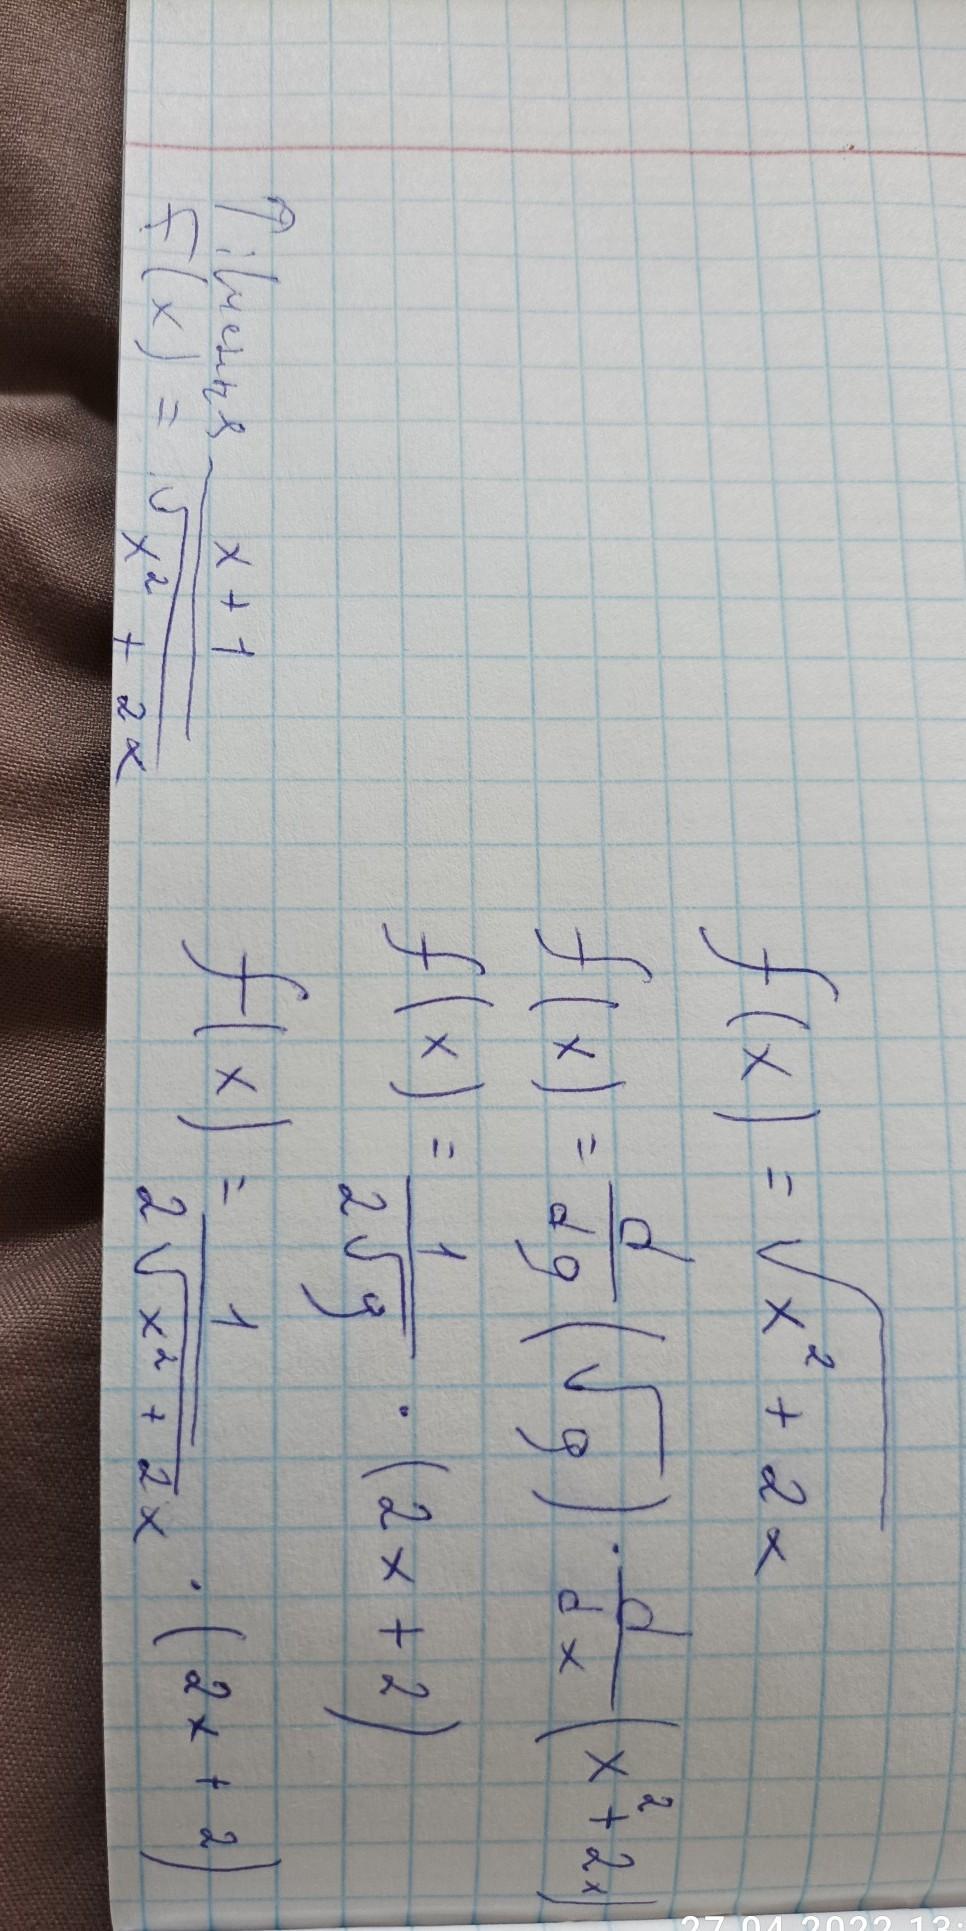 f(x) = √(x² + 2x)
f(x) = d/dg (√g) · d/dx (x² + 2x)
f(x) = 1/(2√g) · (2x + 2)
f(x) = 1/(2√(x² + 2x)) · (2x + 2)
f(x) = (x + 1)/√(x² + 2x)
27.04.2022 13